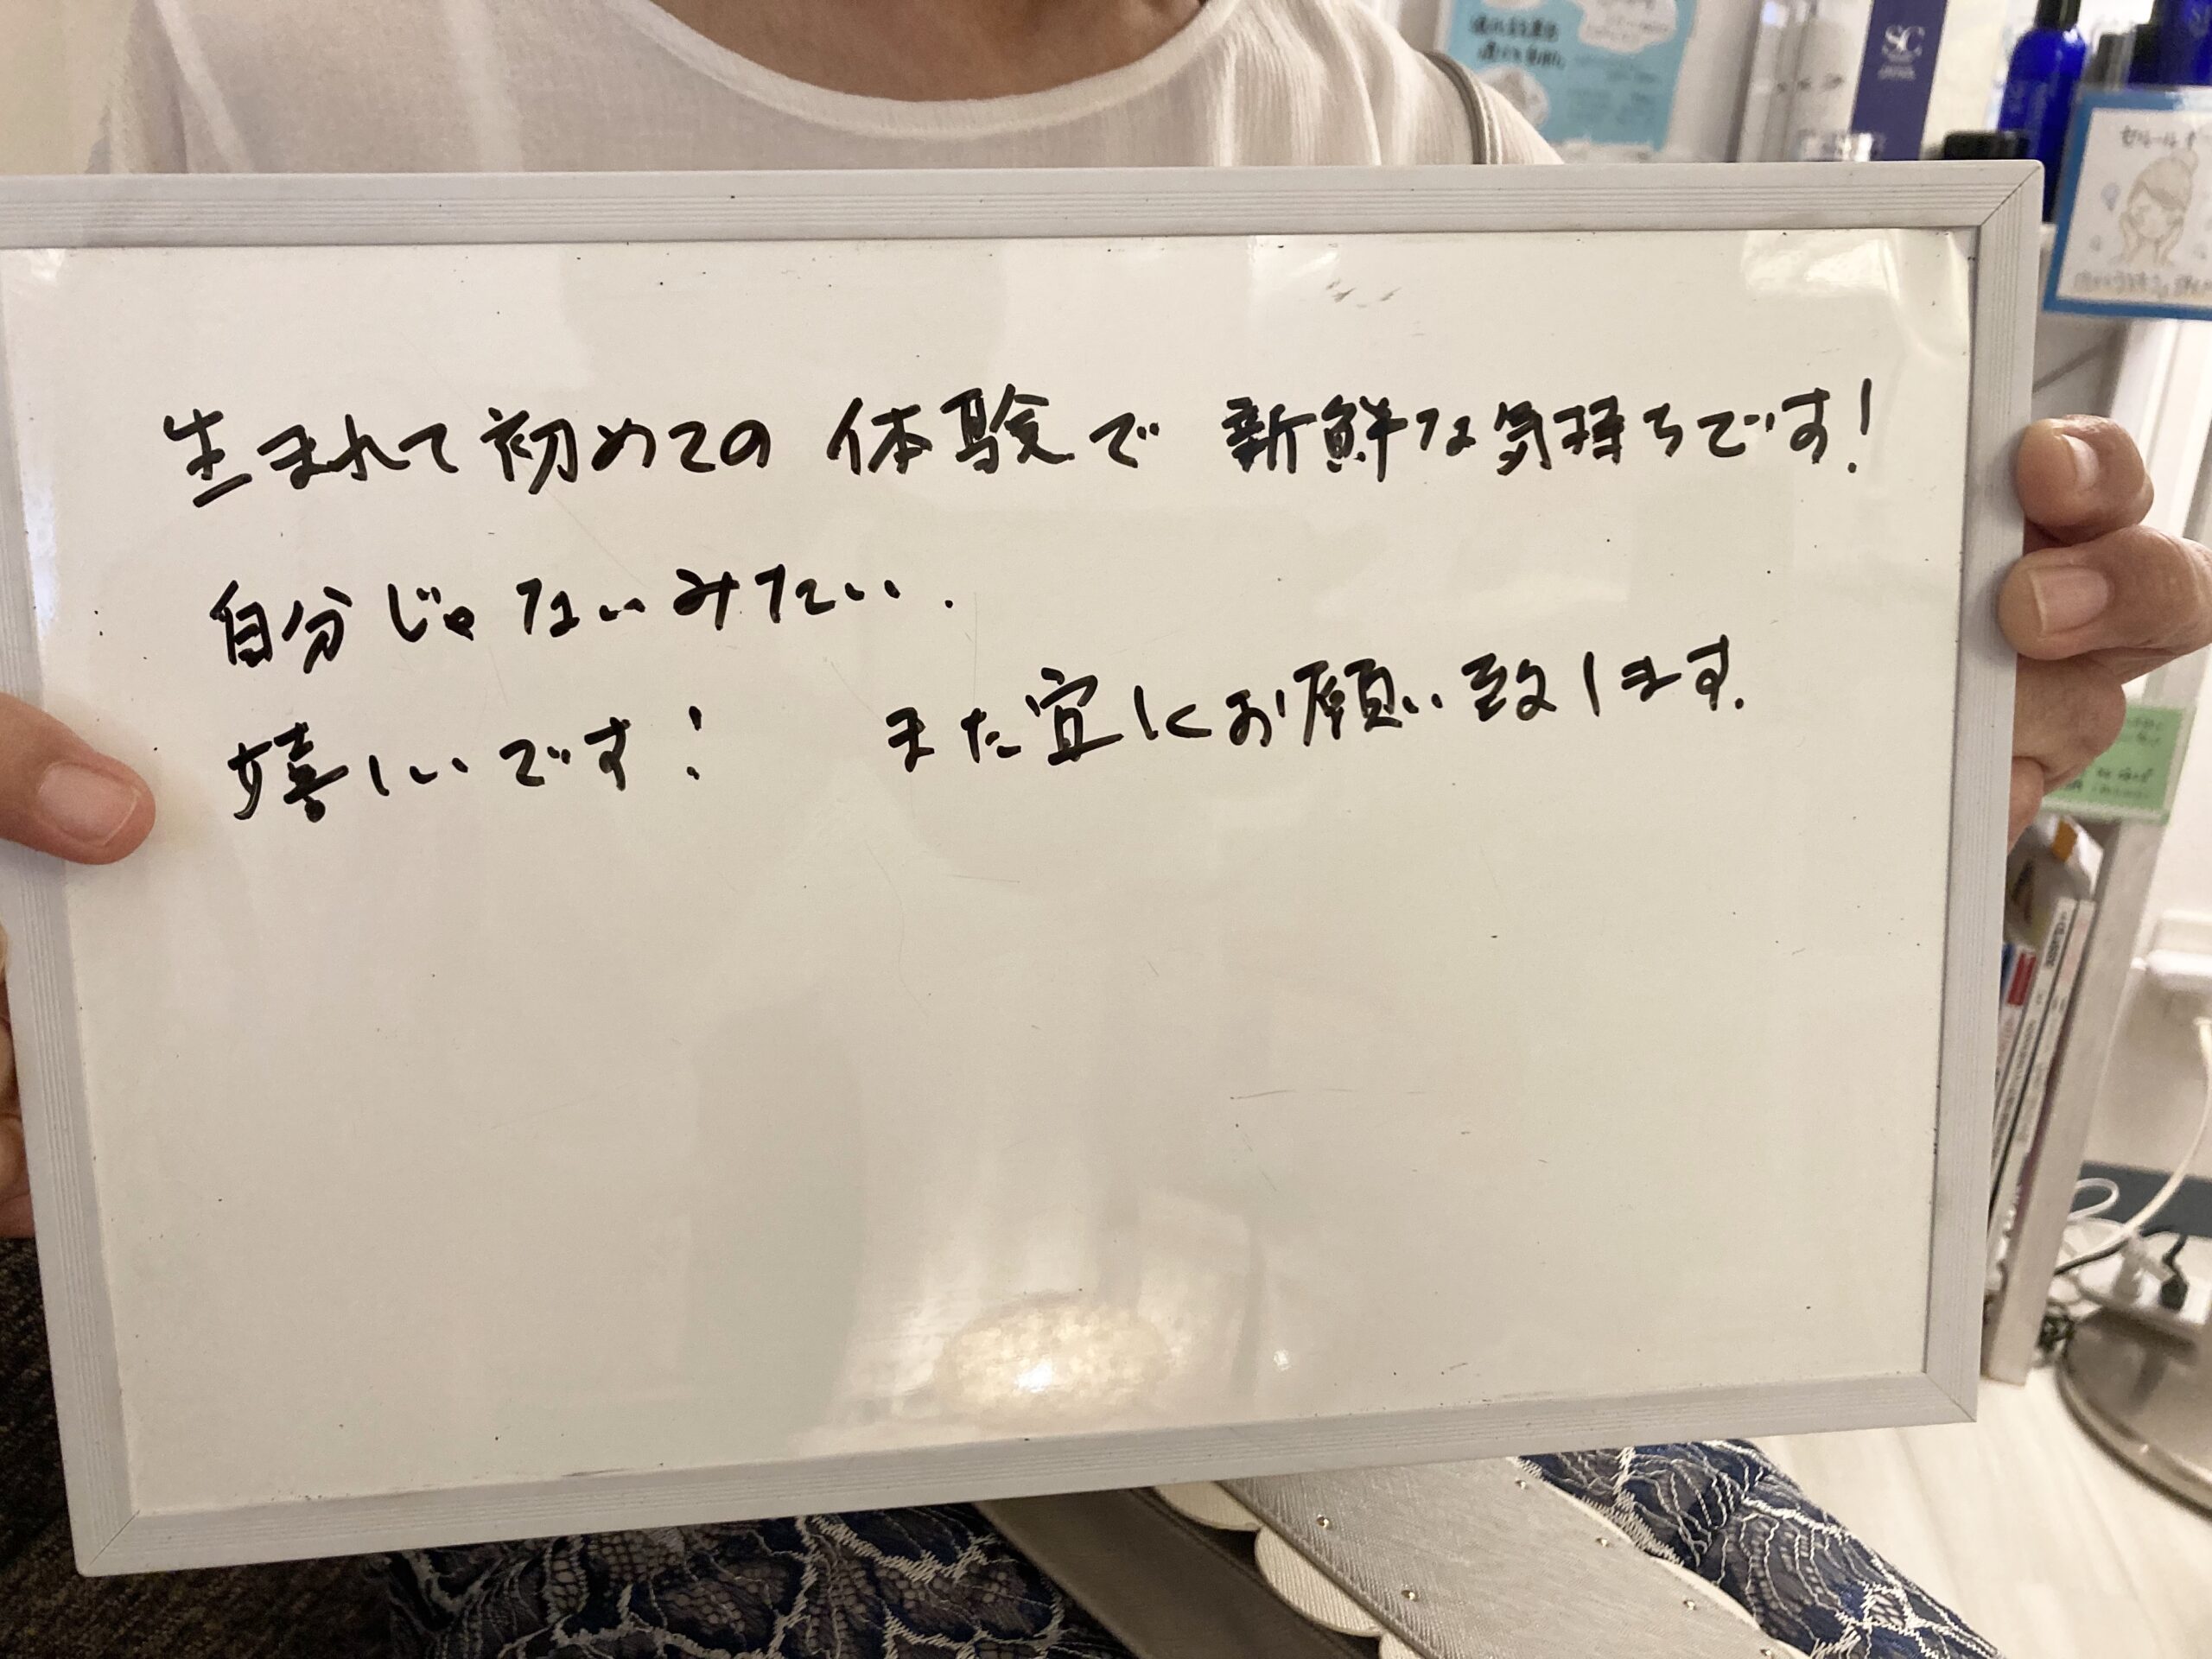 生まれて初めての 体験で 新鮮な気持ちです!
自分じゃないみたい.
嬉しいです! また宜しくお願い致します.
SC